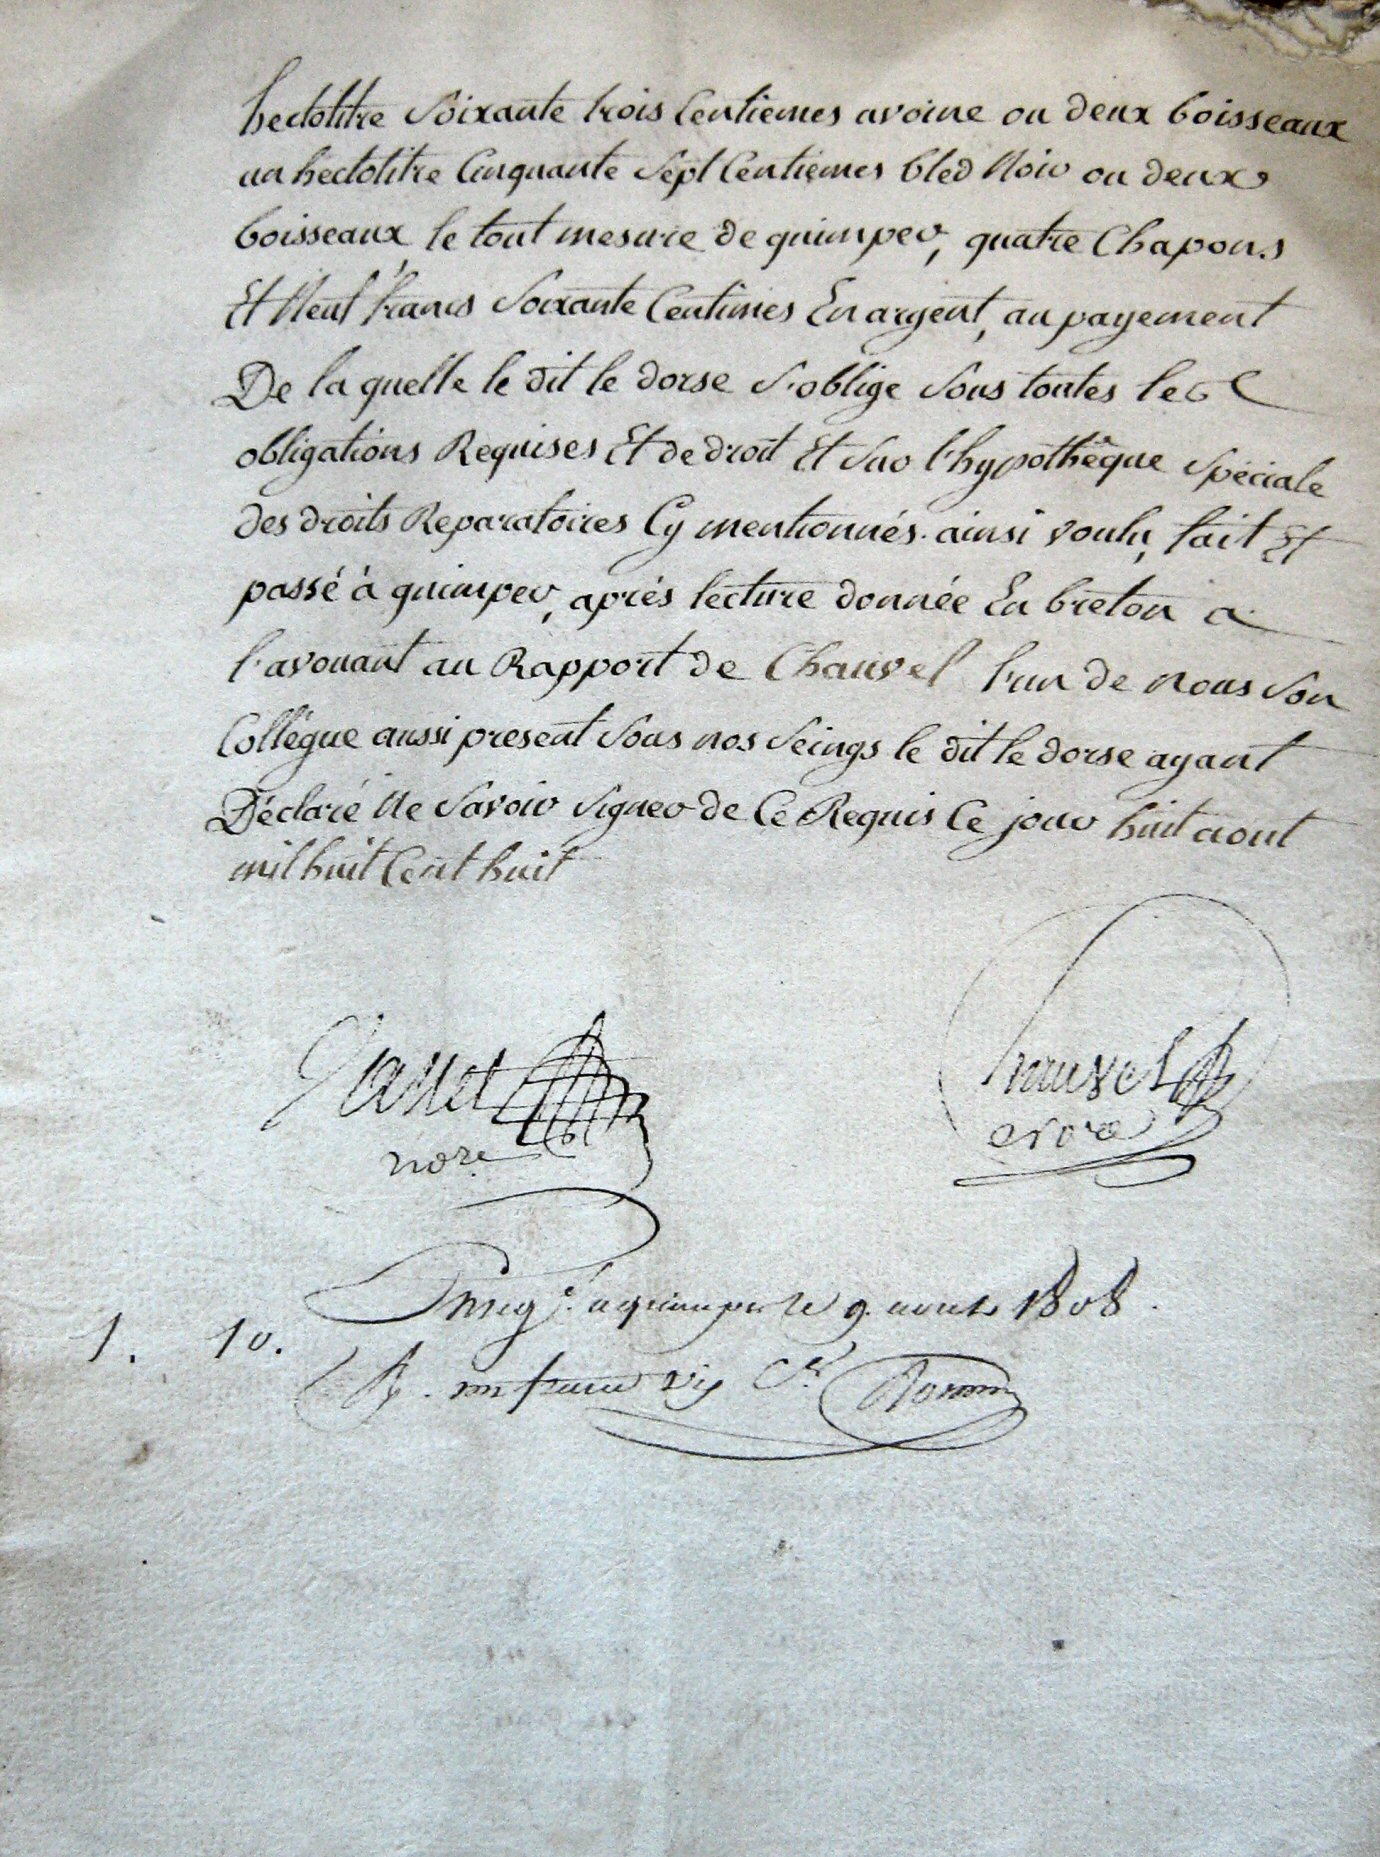 hectolitre Soixante trois Centiemes avoine ou deux boisseaux
un hectolitre Cinquante Sept Centiemes bled Noir ou deux
boisseaux, le tout mesure de quimper, quatre Chapons
Et Neuf francs Soixante Centimes En argent, au payement
De la quelle le dit le dorse S'oblige Sous toutes les
obligations Requises Et de droit Et Sur l'hypothêque Spéciale
des droits Reparatoires Cy mentionnés. ainsi voulu, fait Et
passé à quimper, aprés lecture donnée En breton a
l'avouant au Rapport de Chauvel l'un de nous Son
Collégue aussi present Sous nos Seings le dit le dorse ayant
Déclaré Ne Savoir Signer de Ce Requis Ce jour huit aout
mil huit Cent huit
Chauvel
nore
Enregé. a quimper le 9. aout 1808.
1. 10.
R. un franc dix Ces